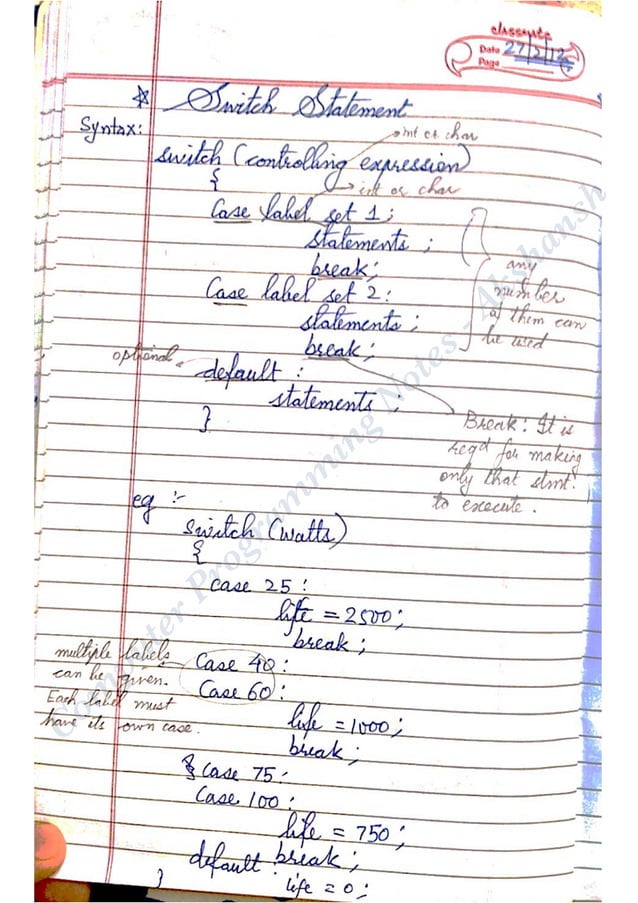 classmate
Date 27/2/12
Page
☆ Switch Statement
Syntax:
int or char
switch (controlling expression)
{
int or char
Case label set 1;
statements ;
break;
Case label set 2:
statements;
break;
any
number
of them can
be used
optional
default :
statements ;
}
Break: It is
reqd for making
only that stmt.
to execute.
eg :-
switch (watts)
{
case 25 :
life = 2500;
break;
multiple labels
can be given.
Each label must
have its own case.
Case 40:
Case 60:
life = 1000;
break;
case 75:
Case 100:
life = 750;
break;
default :
life = 0;
}
Computer Programming Notes - Akshansh